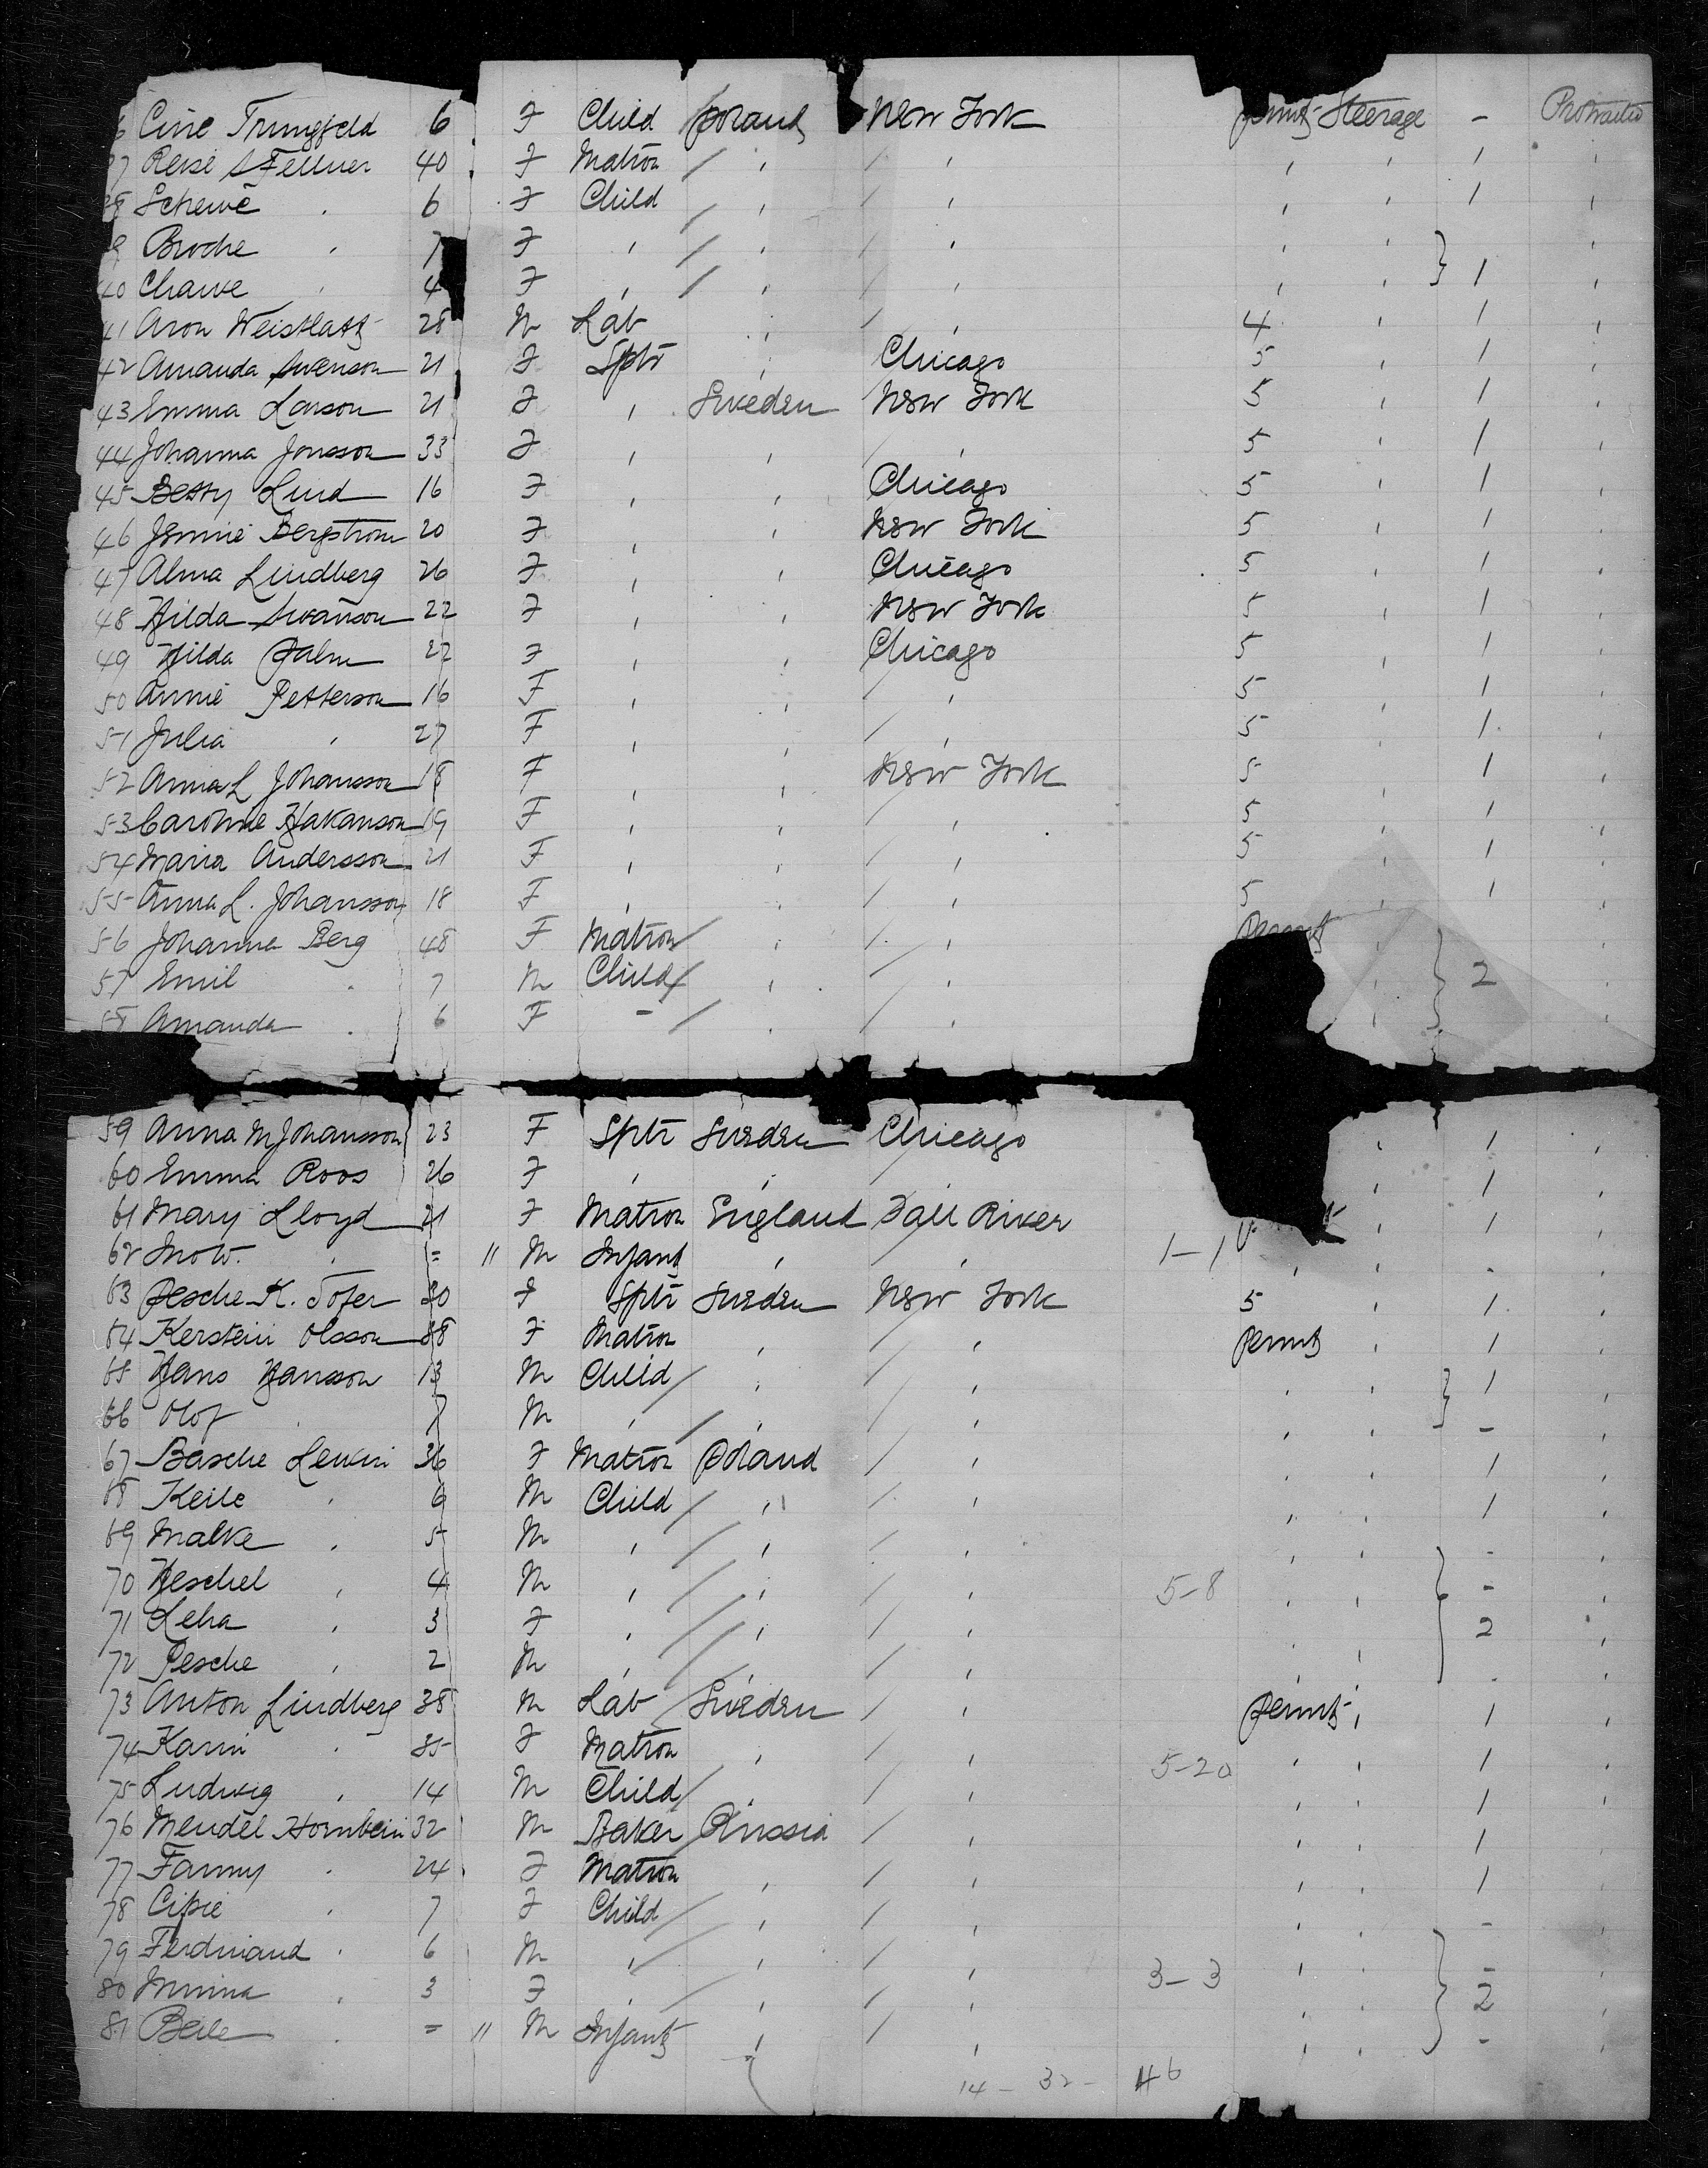 6 Cirie Trungfeld 6 F Child Poland New York permt Steerage - Protracted
37 Reise Fellner 40 F Matron / ' / ' ' ' 1 '
38 Scheive ' 6 F Child / ' / ' ' ' 1 '
9 Broche ' 7 F ' / ' / ' ' ' '
40 Chaive ' 4 F ' / ' / ' ' ' } 1 '
41 Aron Weisblatt 28 M Lab ' / ' 4 ' 1 '
42 Amanda Swenson 21 F Sptr ' Chicago 5 ' 1 '
43 Emma Larson 21 F ' Sweden New York 5 ' 1 '
44 Johanna Jonsson 33 F ' ' / ' 5 ' 1 '
45 Betty Lind 16 F ' ' Chicago 5 ' 1 '
46 Jennie Bergstrom 20 F ' ' New York 5 ' 1 '
47 Alma Lindberg 26 F ' ' Chicago 5 ' 1 '
48 Hilda Swanson 22 F ' ' New York 5 ' 1 '
49 Hilda Palm 22 F ' ' Chicago 5 ' 1 '
50 Annie Petterson 16 F ' ' / ' 5 ' 1 '
51 Julia ' 27 F ' ' / ' 5 ' 1 '
52 Anna L Johansson 18 F ' ' New York 5 1 '
53 Caroline Hakanson 19 F ' ' / ' 5 ' 1 '
54 Maria Andersson 21 F ' ' / ' 5 ' 1 '
55 Anna L. Johansson 18 F ' ' / ' 5 ' 1 '
56 Johanna Berg 48 F Matron / ' / ' Permt ' '
57 Emil ' 7 M Child / ' / ' ' } 2 '
58 Amanda ' 6 F - / ' / ' ' '
59 Anna M Johansson 23 F Sptr Sweden Chicago ' 1 '
60 Emma Roos 26 F ' ' / ' ' 1 '
61 Mary Lloyd 21 F Matron England Fall River ' 1 '
62 Thos W. ' = 11 M Infant ' ' 1-1 ' ' - '
63 Pesche K. Tofer 30 F Sptr Sweden New York 5 ' 1 '
64 Kerstein Olsson 38 F Matron ' / ' Permt ' 1 '
65 Hans Hansson 13 M Child / ' / ' ' ' } 1 '
66 Olof ' 7 M ' / ' / ' ' ' - '
67 Basche Lewin 36 F Matron Poland / ' ' ' 1 '
68 Keile ' 6 M Child / ' / ' ' ' 1 '
69 Malke ' 5 M ' / ' / ' ' ' - '
70 Heschel ' 4 M ' / ' / ' 5-8 ' ' - '
71 Leha ' 3 F ' / ' / ' ' ' } 2 '
72 Pesche ' 2 M ' / ' / ' ' ' - '
73 Anton Lindberg 38 M Lab Sweden / ' Permt ' 1 '
74 Karin ' 35 F Matron ' / ' 5-20 ' ' 1 '
75 Ludwig ' 14 M Child / ' / ' ' ' 1 '
76 Mendel Hornbein 32 M Baker Russia / ' ' ' 1 '
77 Fanny ' 24 F Matron ' / ' ' ' 1 '
78 Cipie ' 7 F Child / ' / ' ' ' - '
79 Ferdinand ' 6 M ' / ' / ' ' ' - '
80 Minna ' 3 F ' / ' / ' 3-3 ' ' } 2 '
81 Beile ' = 11 M Infant ' / ' ' ' - '
14 - 32 - 46